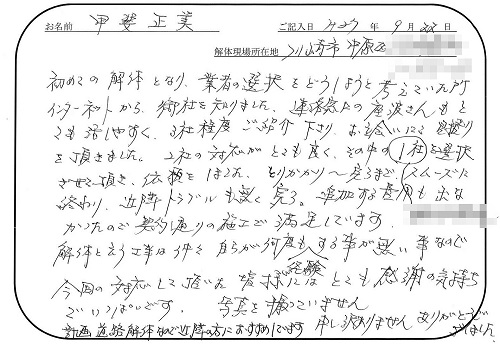 お名前 甲斐正美 ご記入日 2023 年 9 月 22 日
解体現場所在地 川崎市中原区
初めての解体となり、業者の選択をどうしようと考えていた所
インターネットから、御社を知りました。連絡窓口の座波さんもと
ても話しやすく、3社程度ご紹介下さり、お会いにて見積り
を頂きました。2社の対応がとても良く、その中の1社を選択
させて頂き、依頼をしました。とりかかり〜完了まで、スムーズに
終わり、近隣トラブルも無く完了。追加する費用も出な
かったので契約通りの施工で満足しています。
解体という工事は中々自らが何度も経験する事が無い事なので
今回の対応して頂いた皆様にはとても感謝の気持ち
でいっぱいです。写真を撮っていません
計画道路解体なので近隣の方におすすめしています 申し訳ありません ありがとうございました